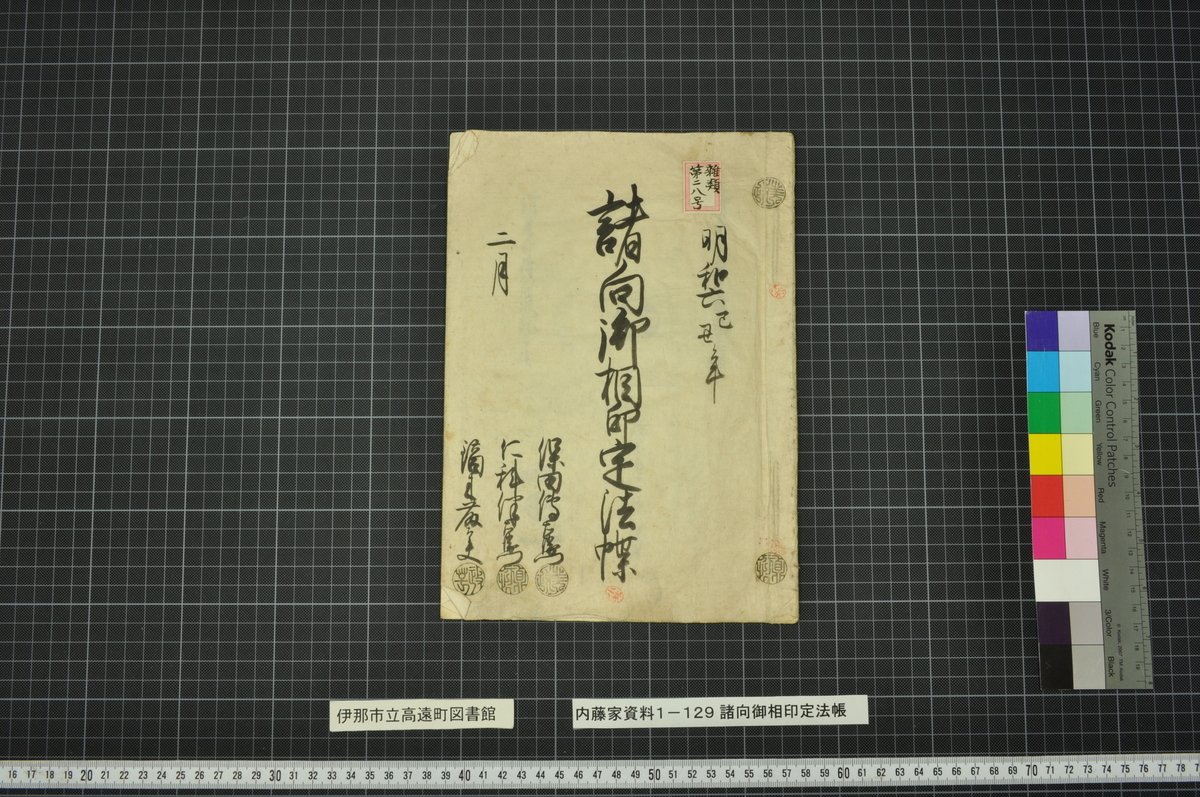 雑類
第二八号
明和六己丑年
諸向御相印定法帳
二月
仁科
伊那市立高遠町図書館
内藤家資料1－129 諸向御相印定法帳
Kodak Color Control Patches
Blue
Cyan
Green
Yellow
Red
Magenta
White
3/Color
Black
16 17 18 19 20 21 22 23 24 25 26 27 28 29 30 31 32 33 34 35 36 37 38 39 40 41 42 43 44 45 46 47 48 49 50 51 52 53 54 55 56 57 58 59 60 61 62 63 64 65 66 67 68 69 70 71 72 73 74 75 76 77 78